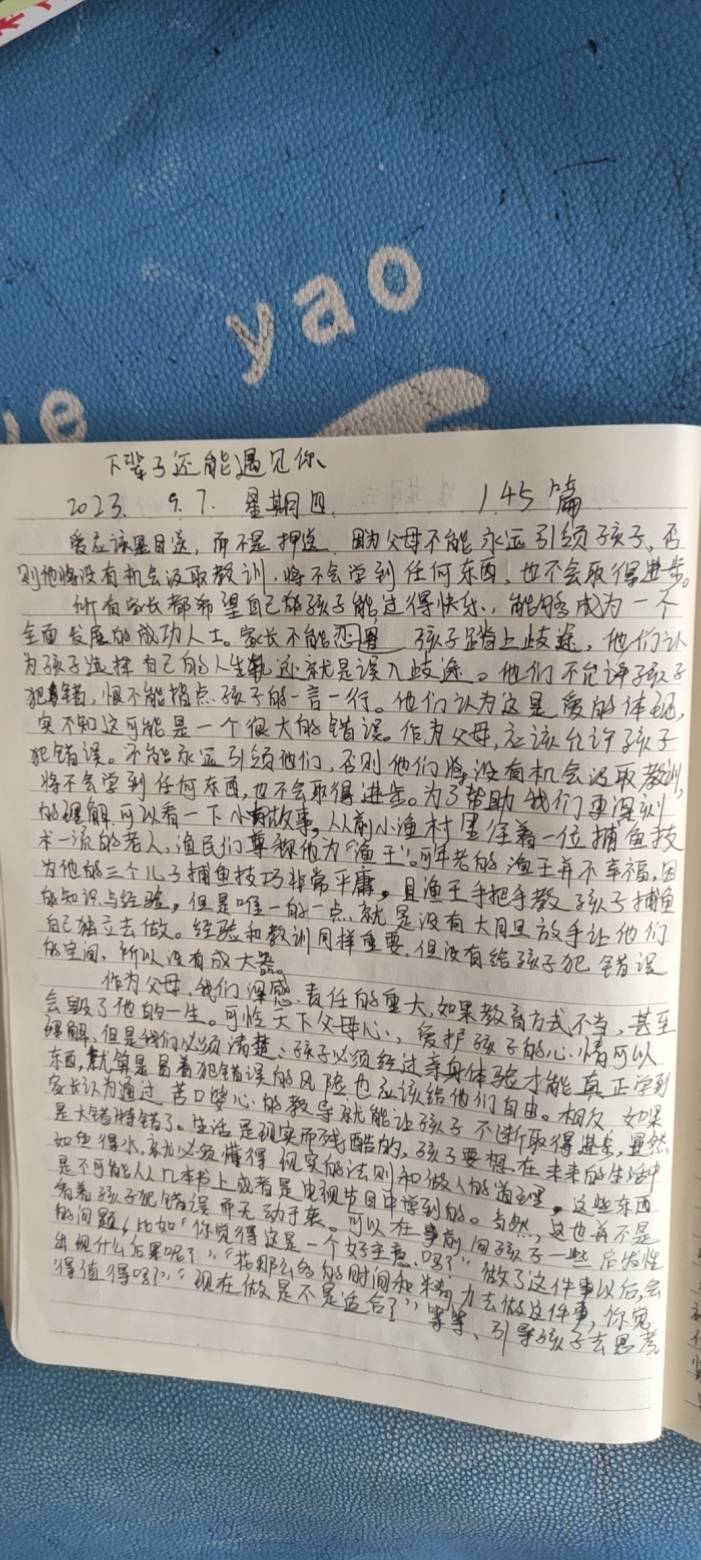 yao
e
下辈子还能遇见你、
2023. 9.7. 星期四. 145篇
爱应该是目送，而不是押送 因为父母不能永远引领孩子，否
则他将没有机会汲取教训，将不会学到任何东西，也不会取得进步。
所有家长都希望自己的孩子能过得快乐，能够成为一个
全面发展的成功人士。家长不能 孩子踏上歧途，他们认
为孩子选择自己的人生轨迹就是误入歧途。他们不允许孩子
犯错，恨不能指点孩子的一言一行。他们认为这是爱的体现，
实不知这可能是一个很大的错误。作为父母，应该允许孩子
犯错误。不能永远引领他们，否则他们将没有机会汲取教训，
将不会学到任何东西，也不会取得进步。为了帮助我们更深刻
的理解，可以看一下小故事，从前小渔村里住着一位捕鱼技
术一流的老人，渔民们尊称他为“渔王”。可年老的渔王并不幸福，因
为他的三个儿子捕鱼技巧非常平庸，且渔王手把手教孩子捕鱼
的知识与经验，但是唯一的一点就是没有大胆放手让他们
自己独立去做。经验和教训同样重要，但没有给孩子犯错误
的空间，所以没有成大器。
作为父母，我们深感责任的重大，如果教育方式不当，甚至
会毁了他的一生。可怜天下父母心，爱护孩子的心情可以
理解，但是我们必须清楚、孩子必须经过亲身体验才能真正学到
东西，就算是冒着犯错误的风险也应该给他们自由。相反，如果
家长认为通过苦口婆心的教导就能让孩子不断取得进步，显然
是大错特错了。生活是现实而残酷的，孩子要想在未来的生活中
如鱼得水，就必须懂得现实的法则和做人的道理，这些东西
是不可能从几本书上或者是电视节目中学到的。当然，这也并不是
看着孩子犯错误而无动于衷。可以在事前问孩子一些启发性
的问题，比如“你觉得这是一个好主意吗？”“做了这件事以后，会
出现什么后果呢？”“花那么多的时间和精力去做这件事，你觉
得值得吗？”“现在做是不是适合？”等等、引导孩子去思考。